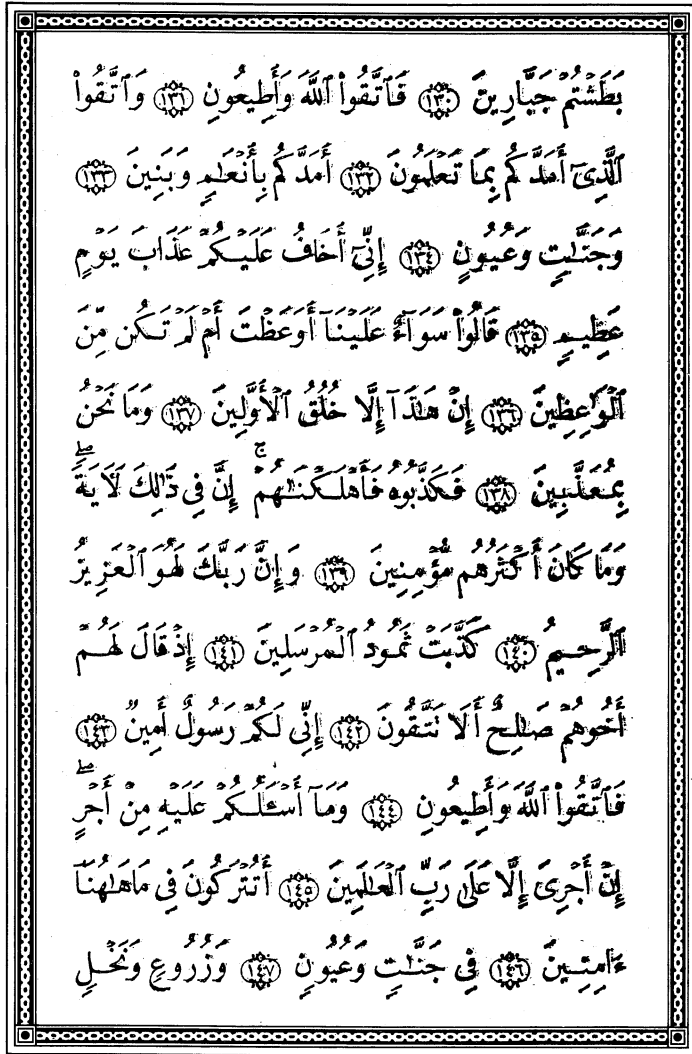 بَطَشْتُمْ جَبَّارِينَ ﴿١٣٠﴾ فَٱتَّقُوا۟ ٱللَّهَ وَأَطِيعُونِ ﴿١٣١﴾ وَٱتَّقُوا۟
ٱلَّذِىٓ أَمَدَّكُم بِمَا تَعْلَمُونَ ﴿١٣٢﴾ أَمَدَّكُم بِأَنْعَـٰمٍ وَبَنِينَ ﴿١٣٣﴾
وَجَنَّـٰتٍ وَعُيُونٍ ﴿١٣٤﴾ إِنِّىٓ أَخَافُ عَلَيْكُمْ عَذَابَ يَوْمٍ
عَظِيمٍ ﴿١٣٥﴾ قَالُوا۟ سَوَآءٌ عَلَيْنَآ أَوَعَظْتَ أَمْ لَمْ تَكُن مِّنَ
ٱلْوَٰعِظِينَ ﴿١٣٦﴾ إِنْ هَـٰذَآ إِلَّا خُلُقُ ٱلْأَوَّلِينَ ﴿١٣٧﴾ وَمَا نَحْنُ
بِمُعَذَّبِينَ ﴿١٣٨﴾ فَكَذَّبُوهُ فَأَهْلَكْنَـٰهُمْ ۚ إِنَّ فِى ذَٰلِكَ لَـَٔايَةً ۖ
وَمَا كَانَ أَكْثَرُهُم مُّؤْمِنِينَ ﴿١٣٩﴾ وَإِنَّ رَبَّكَ لَهُوَ ٱلْعَزِيزُ
ٱلرَّحِيمُ ﴿١٤٠﴾ كَذَّبَتْ ثَمُودُ ٱلْمُرْسَلِينَ ﴿١٤١﴾ إِذْ قَالَ لَهُمْ
أَخُوهُمْ صَـٰلِحٌ أَلَا تَتَّقُونَ ﴿١٤٢﴾ إِنِّى لَكُمْ رَسُولٌ أَمِينٌ ﴿١٤٣﴾
فَٱتَّقُوا۟ ٱللَّهَ وَأَطِيعُونِ ﴿١٤٤﴾ وَمَآ أَسْـَٔلُكُمْ عَلَيْهِ مِنْ أَجْرٍ ۖ
إِنْ أَجْرِىَ إِلَّا عَلَىٰ رَبِّ ٱلْعَـٰلَمِينَ ﴿١٤٥﴾ أَتُتْرَكُونَ فِى مَا هَـٰهُنَآ
ءَامِنِينَ ﴿١٤٦﴾ فِى جَنَّـٰتٍ وَعُيُونٍ ﴿١٤٧﴾ وَزُرُوعٍ وَنَخْلٍ